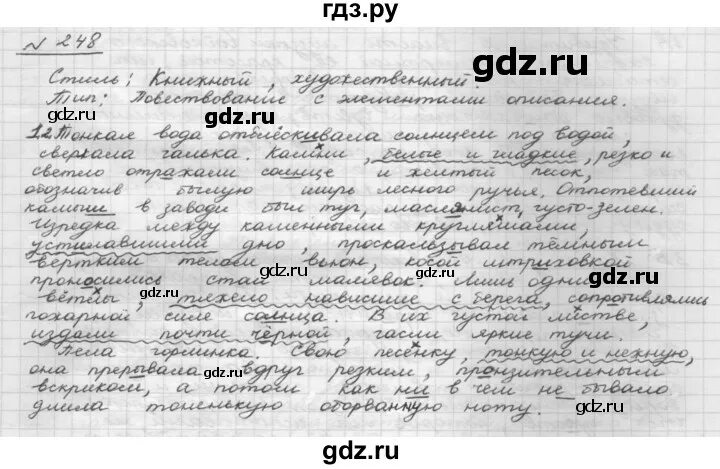 гдз.ру
№ 248
Стиль: Книжный, художественный.
Тип: Повествование с элементами описания.
12. Тонкая вода отблёскивала солнцем под водой,
сверкала галька. Камни, белые и гладкие, резко и
светло отражали солнце и желтый песок,
обозначив былую ширь лесного ручья. Отпотевший
камыш в заводи был туг, маслянист, густо-зелен.
Изредка между каменными кругляшами,
устилавшими дно, проскальзывал тёмным
вертким телом вьюн, косой штриховкой
проносились стаи малявок. Лишь одни
вётлы, тяжело нависшие с берега, сопротивлялись
пожарной силе солнца. В их густой листве,
издали почти чёрной, гасли яркие тучи.
Пела горлинка. Свою песенку, тонкую и нежную,
она прерывала вдруг резким, пронзительным
вскриком, а потом как ни в чем не бывало
длила тоненькую оборванную ноту.
gdz.ru
gdz.ru
gdz.ru
gdz.ru
gdz.ru
gdz.ru
gdz.ru
gdz.ru